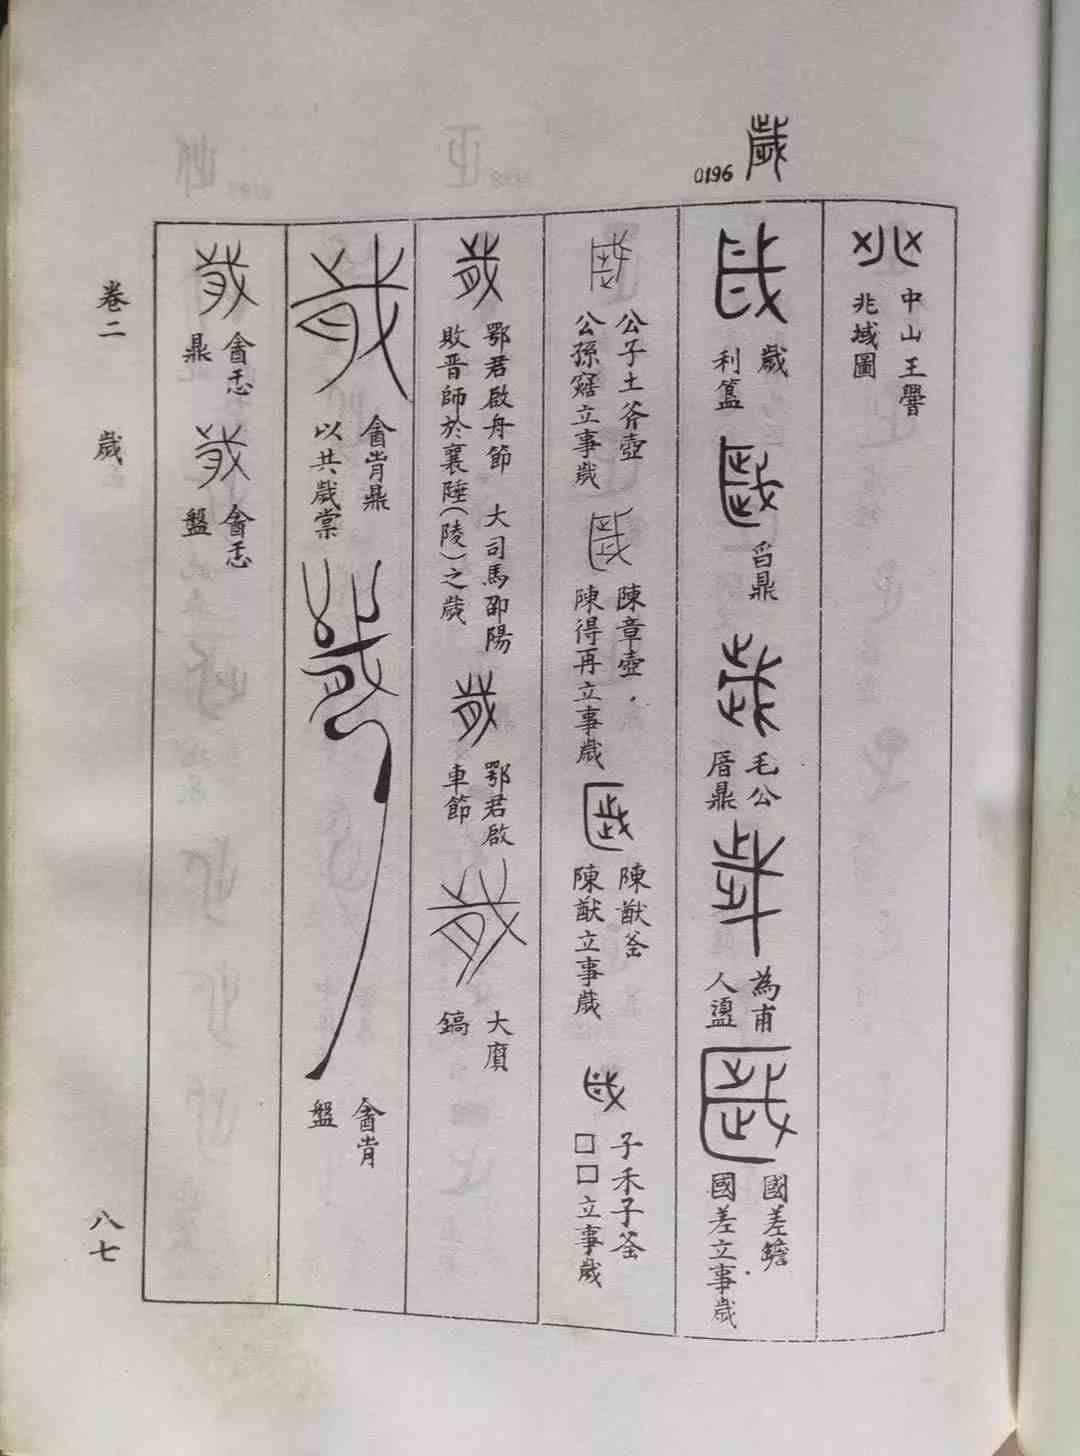 歲
0196
中山王嚳
兆域圖
歲
利簋
舀鼎
毛公
厝鼎
為甫
人盨
國差𦉜
國差立事歲
公子土斧壺
公孫窹立事歲
陳章壺
陳得再立事歲
陳猷釜
陳猷立事歲
子禾子釜
□□立事歲
鄂君啟舟節 大司馬卲陽
敗晉師於襄陲(陵)之歲
鄂君啟
車節
大䈞
鎬
酓肯鼎
以共歲棠
酓肯
盤
酓忎
鼎
酓忎
盤
卷二 歲
八七